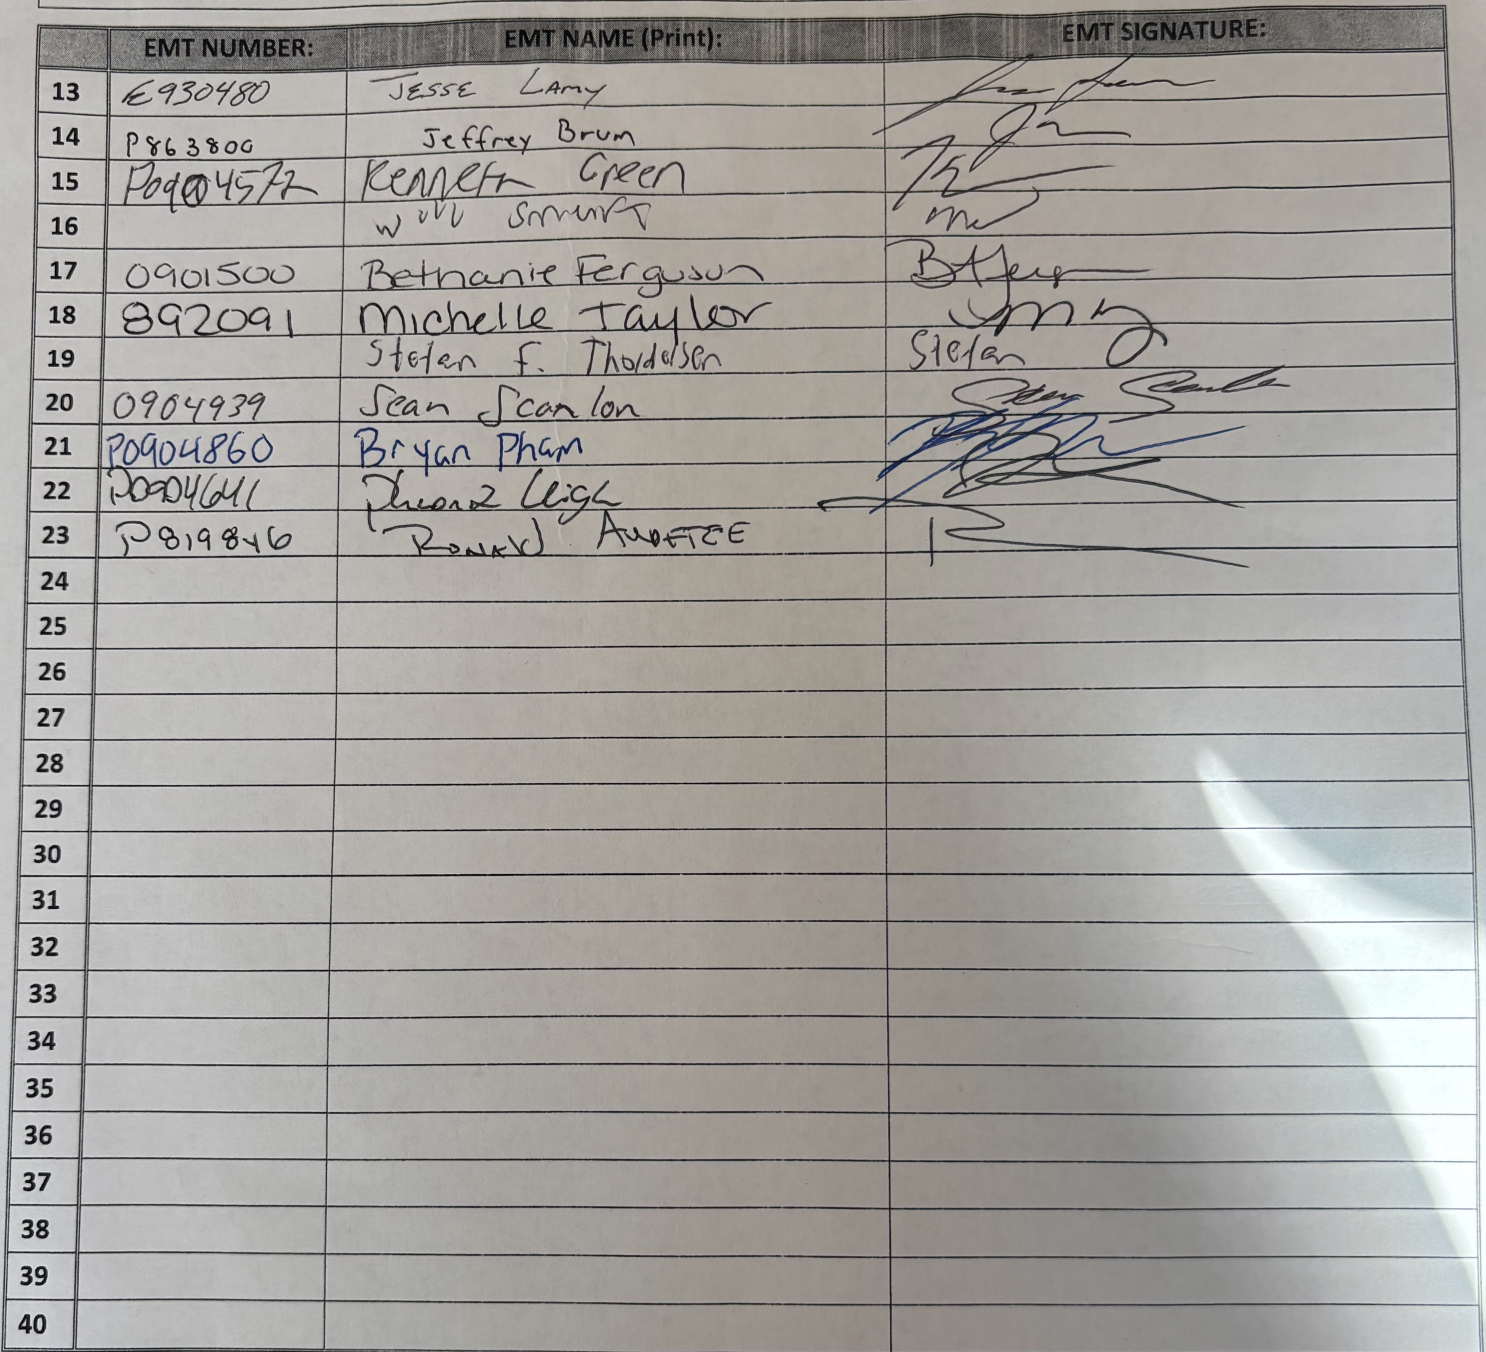 EMT NUMBER: EMT NAME (Print): EMT SIGNATURE:
13 E930480 JESSE LAMY
14 P863800 Jeffrey Brum
15 P0904572 Kenneth Green
16 Will
17 0901500 Bethanie Ferguson
18 892091 Michelle Taylor
19 Stefan F. Stefan
20 0904939 Sean Scanlon
21 P0904860 Bryan Pham
22 P0904641 Leigh
23 RONALD
24
25
26
27
28
29
30
31
32
33
34
35
36
37
38
39
40